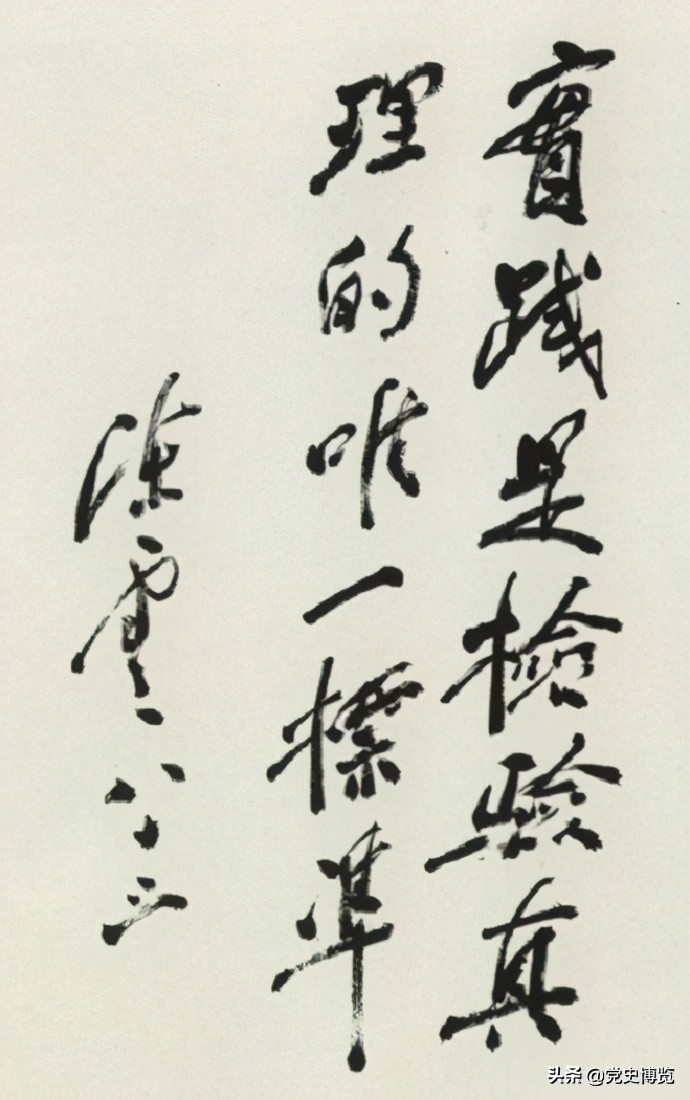 實踐是檢驗真
理的唯一標準
陳雲 八十三
头条 @党史博览